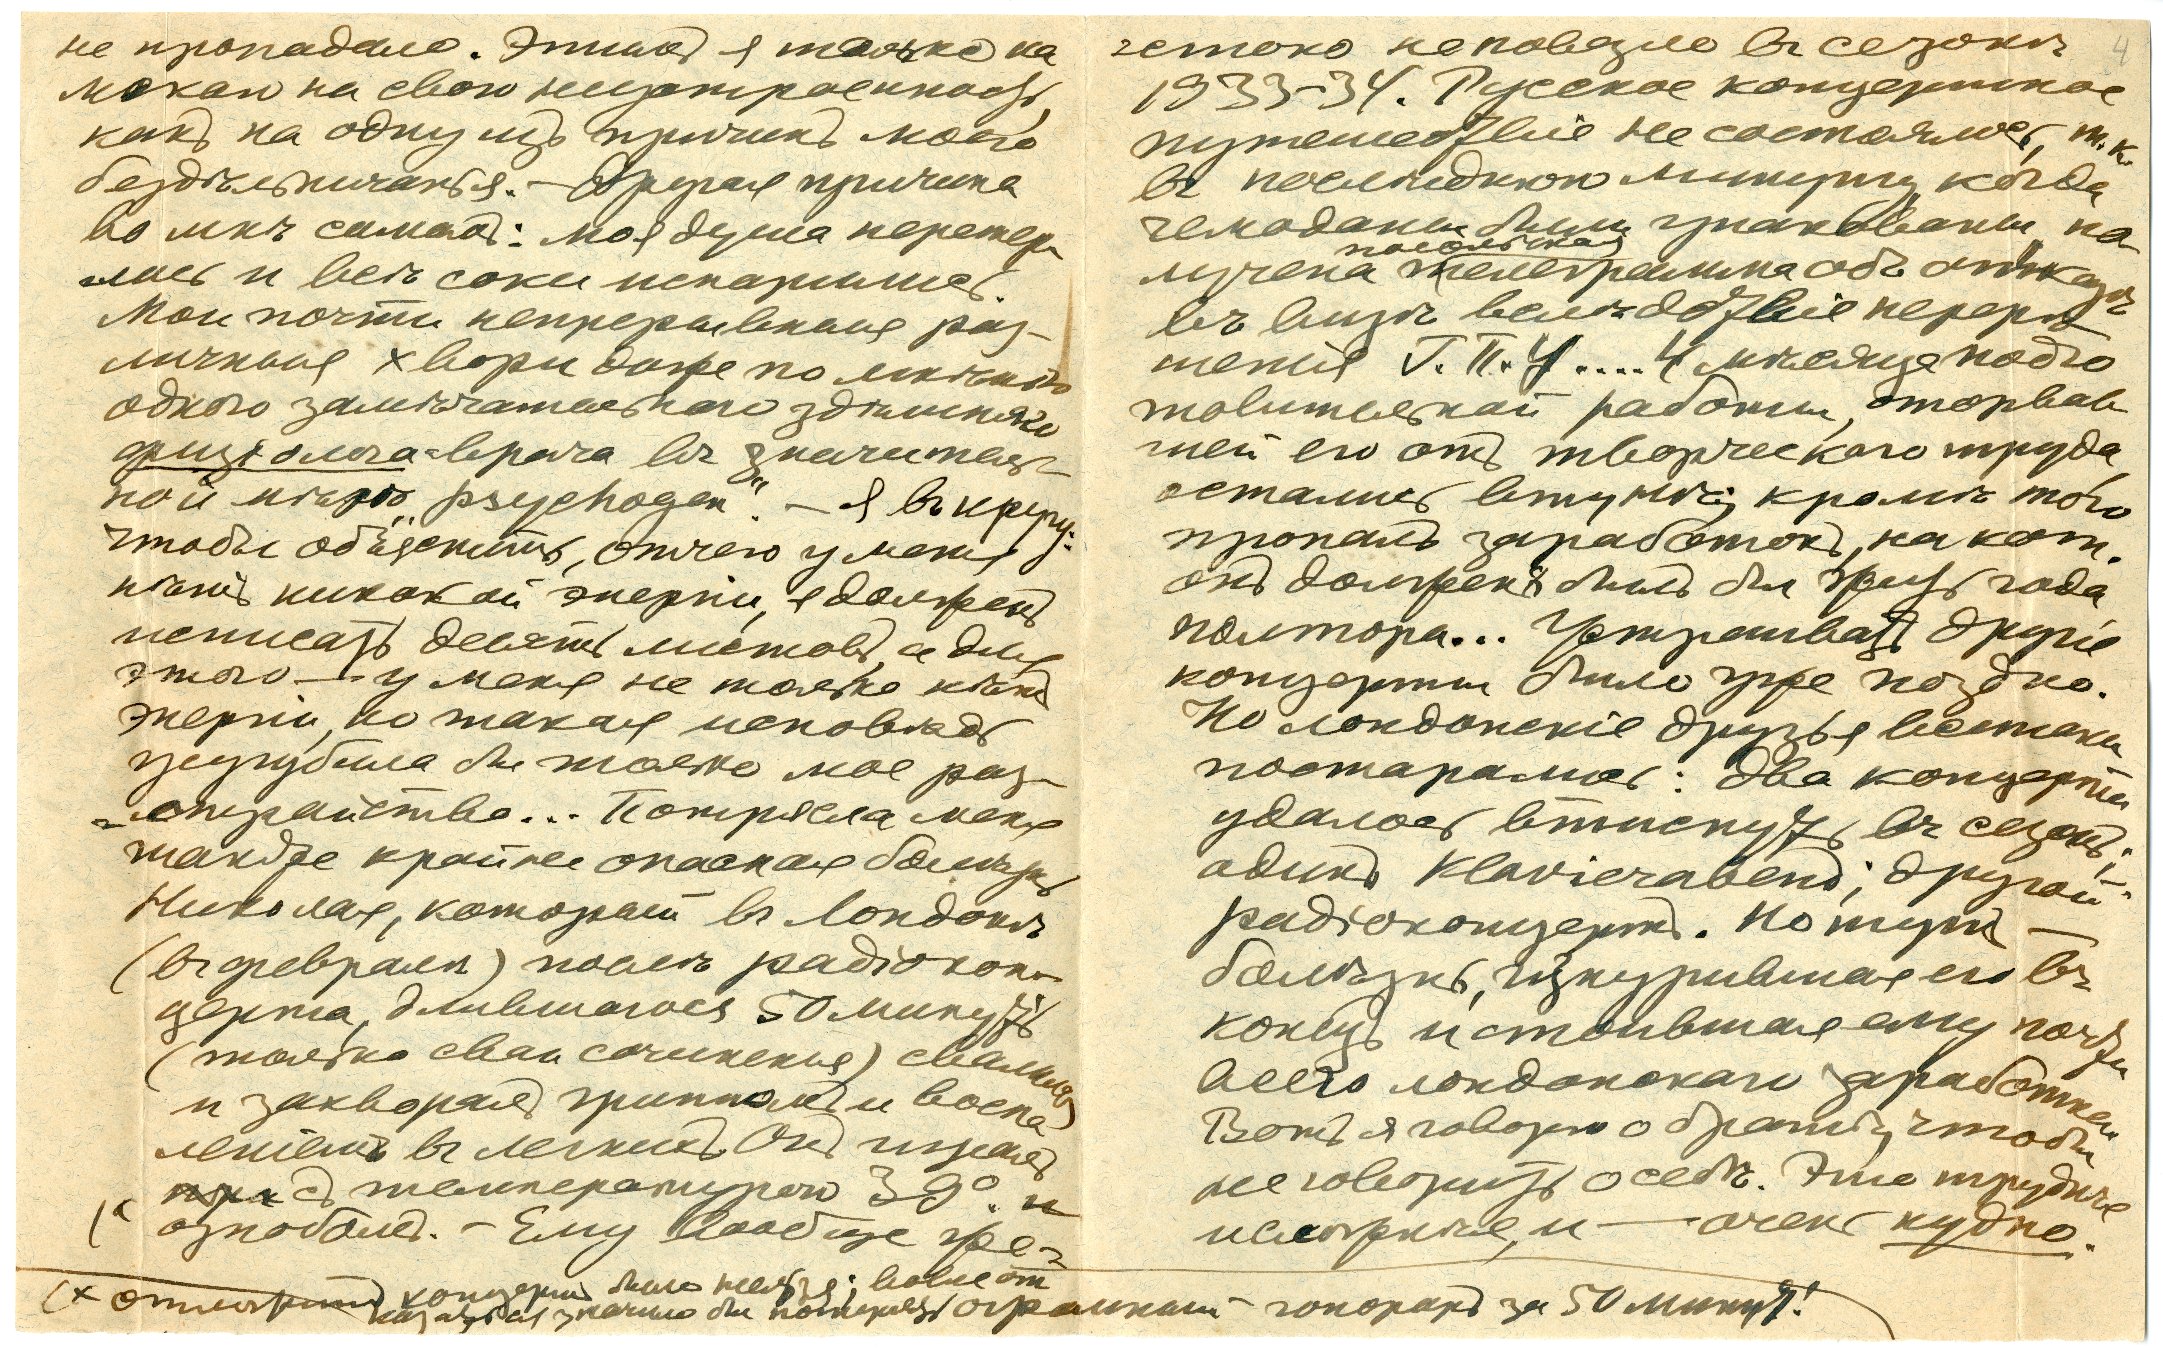 не пропадало. Этимъ я только на
мекаю на свою неустроенность,
какъ на одну изъ причинъ моего
бездѣльничанья. – Другая причина
во мнѣ самомъ: моя душа перетер
лась и всѣ соки испарились.
Мои почти непрерывныя раз-
личныя хвори даже по мнѣнію
одного замѣчательнаго здѣшняго
физіолога-врача въ значитель-
ной мѣрѣ „psychogen“. – Я въ кругу:
чтобы объяснить, отчего у меня
нѣтъ никакой энергіи, я долженъ
исписать десять листовъ, а для
этого — у меня не только нѣтъ
энергіи, но такая исповѣдь
усугубила бы только мое раз-
стройство... Потрясла меня
также крайне опасная болѣзнь
Николая, который въ Лондонѣ
(въ февралѣ) послѣ радіокон-
церта, длившагося 50 минутъ
(только свои сочиненія) свалился
и захворалъ гриппомъ и воспа
леніемъ въ легкихъ. Онъ игралъ
съ температурой 39° и
(× ознобомъ. – Ему вообще же-
(× отмѣнить концертъ было нельзя; вовсе от
казаться значило бы потерять огромный гонораръ за 50 минутъ!
4
стоко неповезло въ сезонѣ
1933-34. Русское концертное
путешествіе не состоялось, т. к.
въ послѣднюю минуту, когда
чемоданы были упакованы, по-
лучена посольская телеграмма объ отказѣ
въ визѣ вслѣдствіе
Г.П.У .... 4 мѣсяца подго
товительной работы, оторвав
шей его отъ творческаго труда
остались втунѣ; кромѣ того
пропалъ заработокъ, на кот.
онъ долженъ былъ бы жить года
полтора... Устраивать другіе
концерты было уже поздно.
Но лондонскіе друзья всетаки
постарались: два концерта
удалось втиснуть въ сезонъ:
одинъ Klavierabend; другой –
радіоконцертъ. Но тутъ —
болѣзнь, изнурившая его въ
конецъ и стоившая ему почти
всего лондонскаго заработка.
Вотъ я говорю о братѣ, чтобы
не говорить о себѣ. Это труднѣе
и — очень нудно.